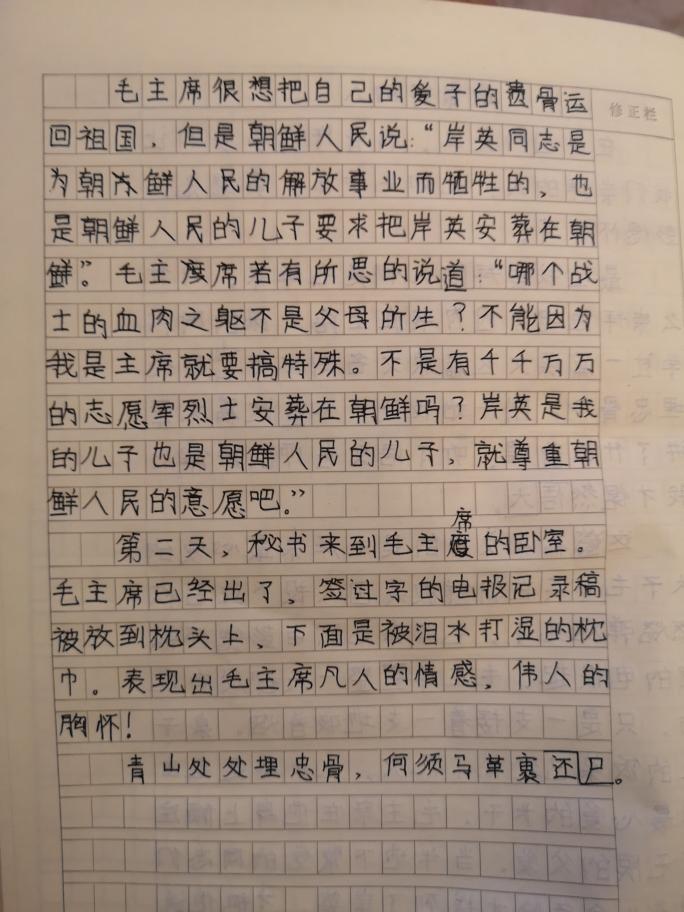 修正栏
毛主席很想把自己的爱子的遗骨运
回祖国，但是朝鲜人民说：“岸英同志是
为朝鲜人民的解放事业而牺牲的，也
是朝鲜人民的儿子要求把岸英安葬在朝
鲜”。毛主席若有所思的说道：“哪个战
士的血肉之躯不是父母所生？不能因为
我是主席就要搞特殊。不是有千千万万
的志愿军烈士安葬在朝鲜吗？岸英是我
的儿子也是朝鲜人民的儿子，就尊重朝
鲜人民的意愿吧。”
第二天，秘书来到毛主席的卧室。
毛主席已经出了，签过字的电报记录稿
被放到枕头上，下面是被泪水打湿的枕
巾。表现出毛主席凡人的情感，伟人的
胸怀！
青山处处埋忠骨，何须马革裹还尸。